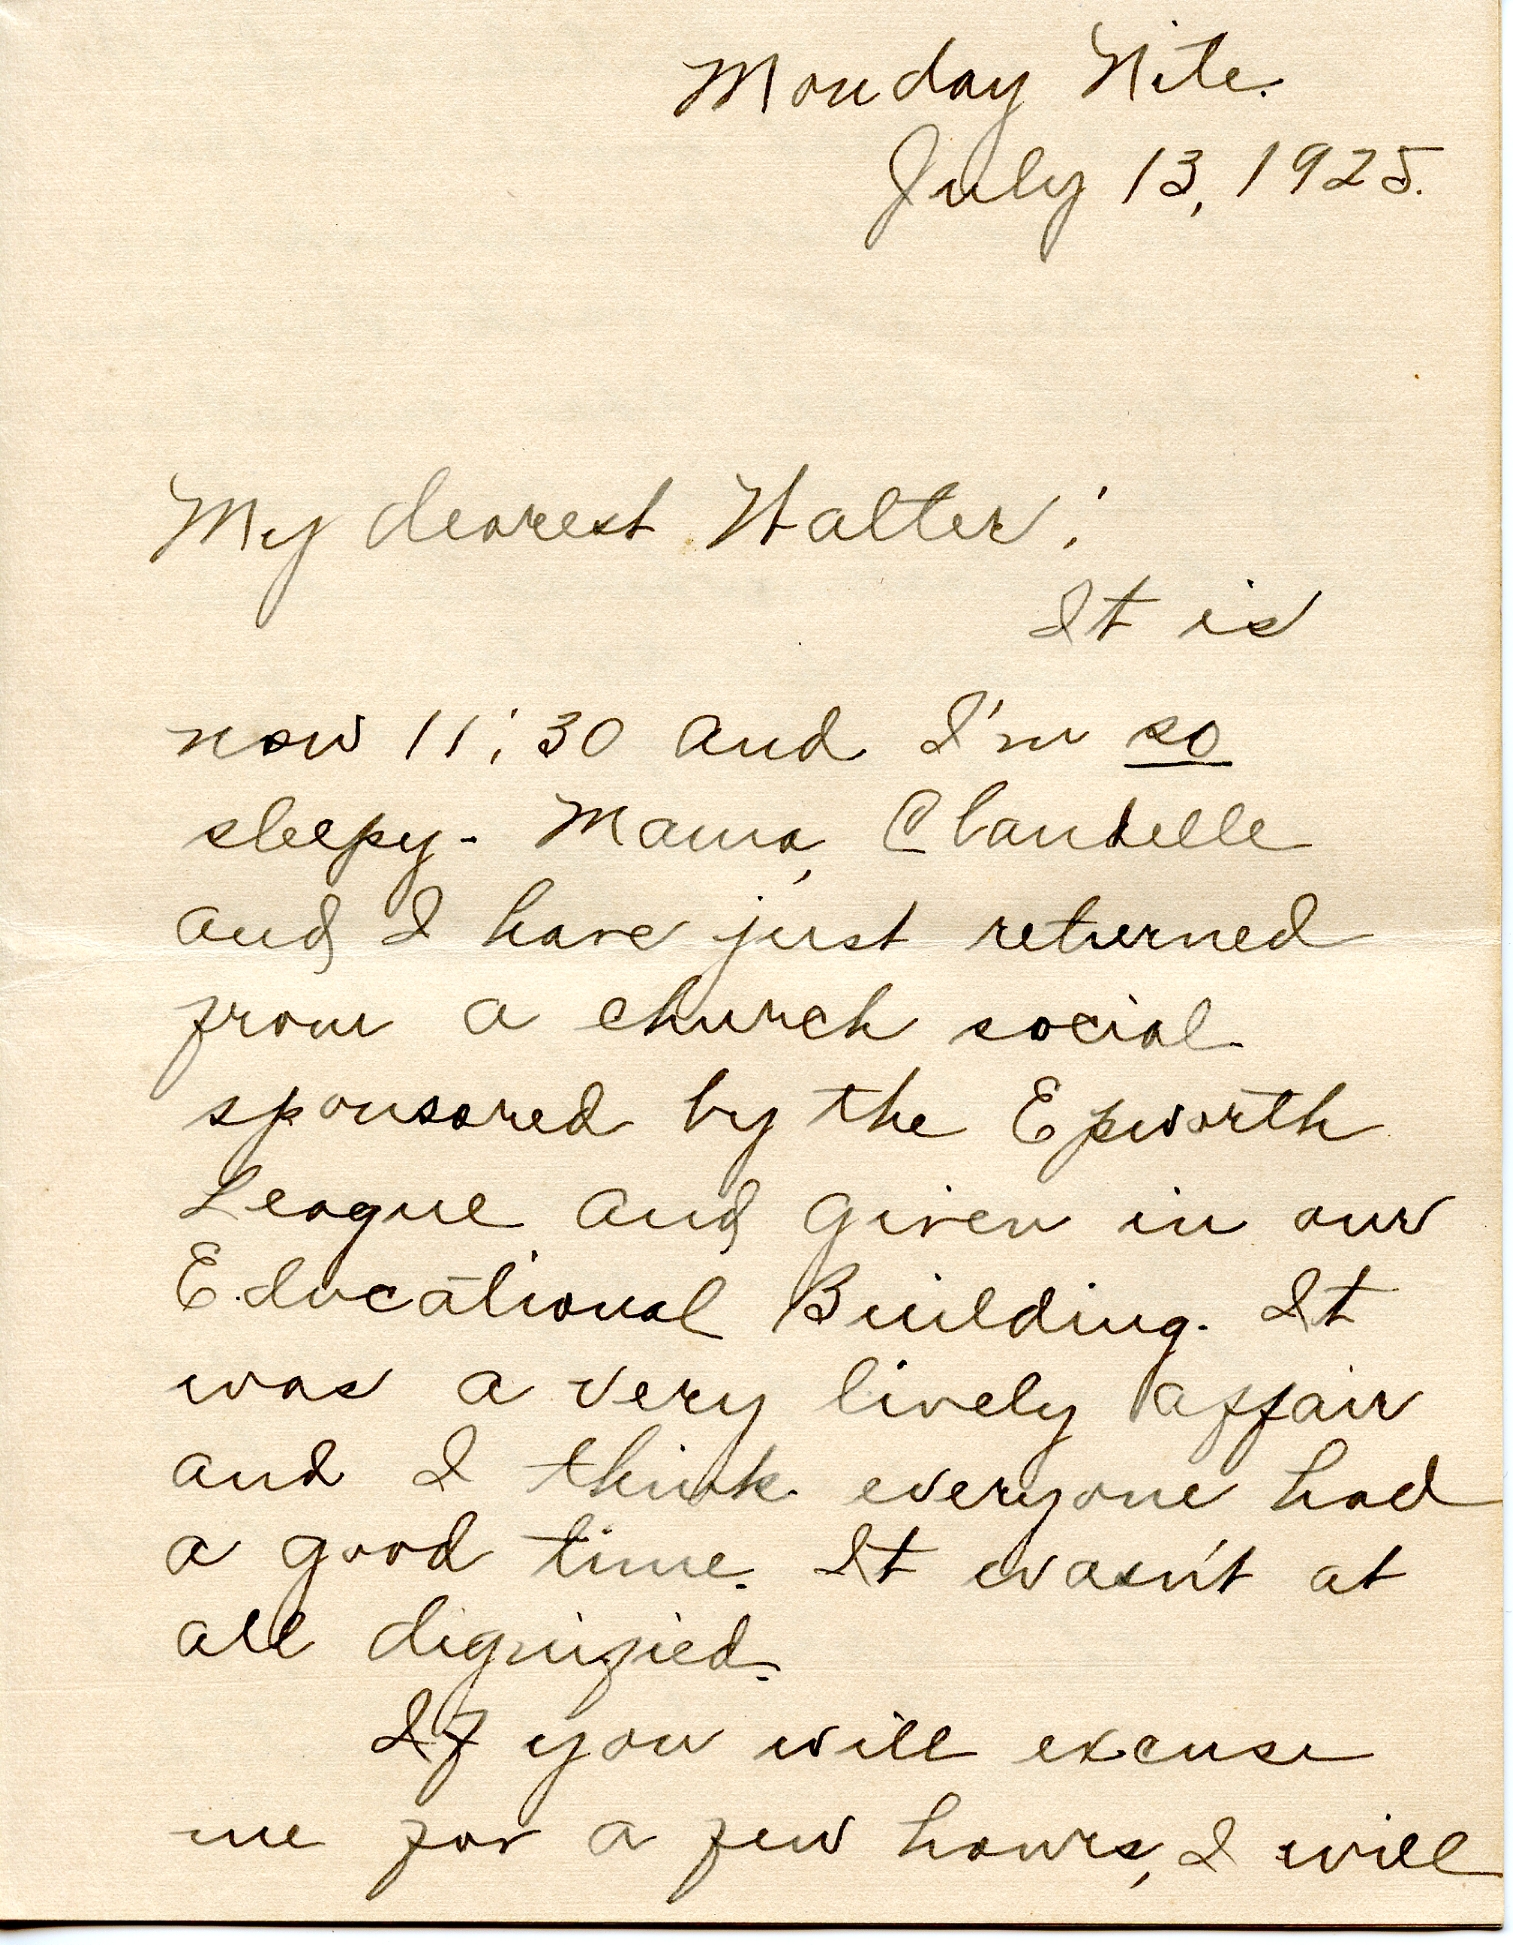 Monday Nite.
July 13, 1925.
My dearest Walter:
It is
now 11:30 and I'm so
sleepy. Mama, Claudelle
and I have just returned
from a church social
sponsored by the Epworth
League and given in our
Educational Building. It
was a very lively affair
and I think everyone had
a good time. It wasn't at
all dignified.
If you will excuse
me for a few hours, I will